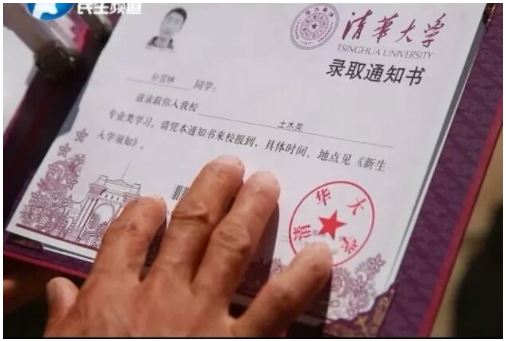 民生频道
清华大学
TSINGHUA UNIVERSITY
录取通知书
同学:
兹录取你入我校 土木类
专业类学习。请凭本通知书来校报到。具体时间、地点见《新生
入学须知》。
清华大学